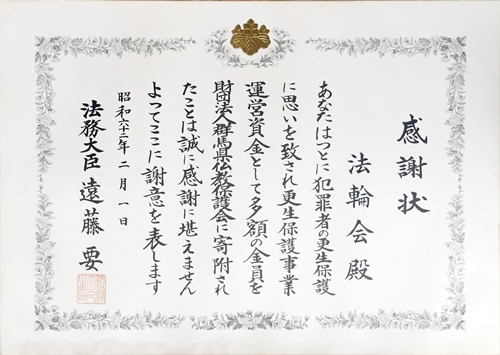 感謝状
法輪会殿
あなたはつとに犯罪者の更生保護
に思いを致され更生保護事業
運営資金として多額の金員を
財団法人群馬県仏教保護会に寄附され
たことは誠に感謝に堪えません
よってここに謝意を表します
昭和六十二年二月一日
法務大臣 遠藤要